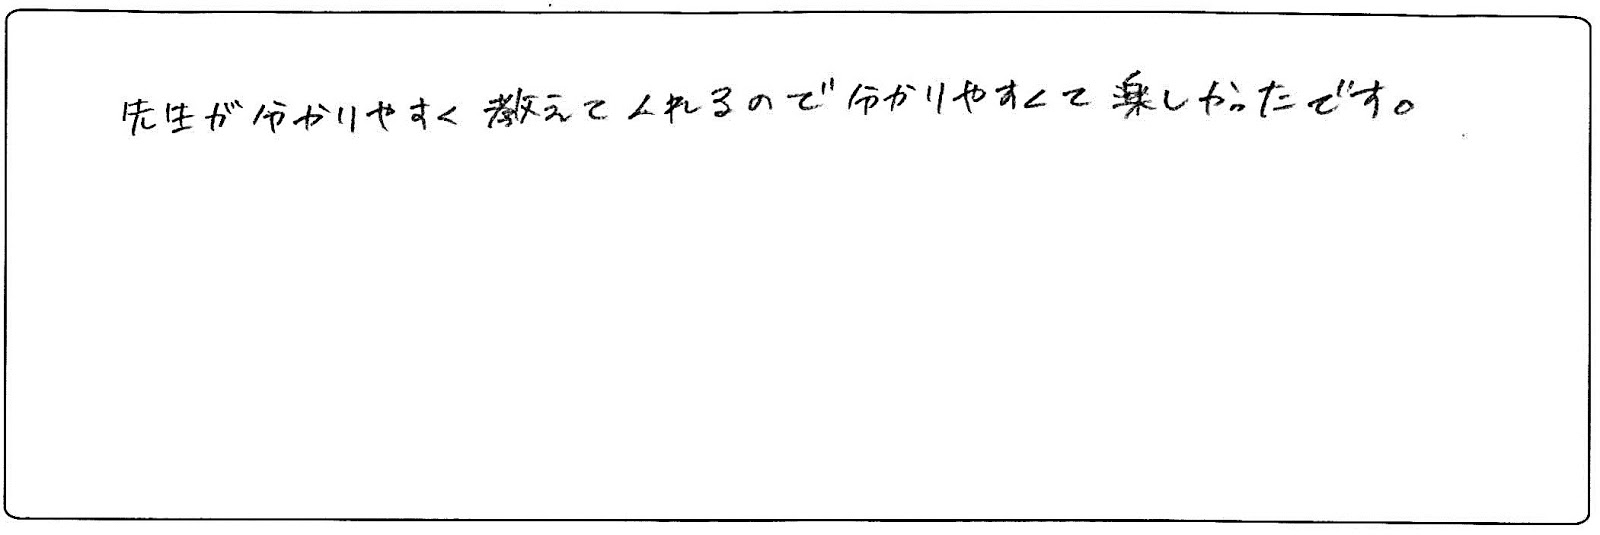 先生が分かりやすく教えてくれるので分かりやすくて楽しかったです。